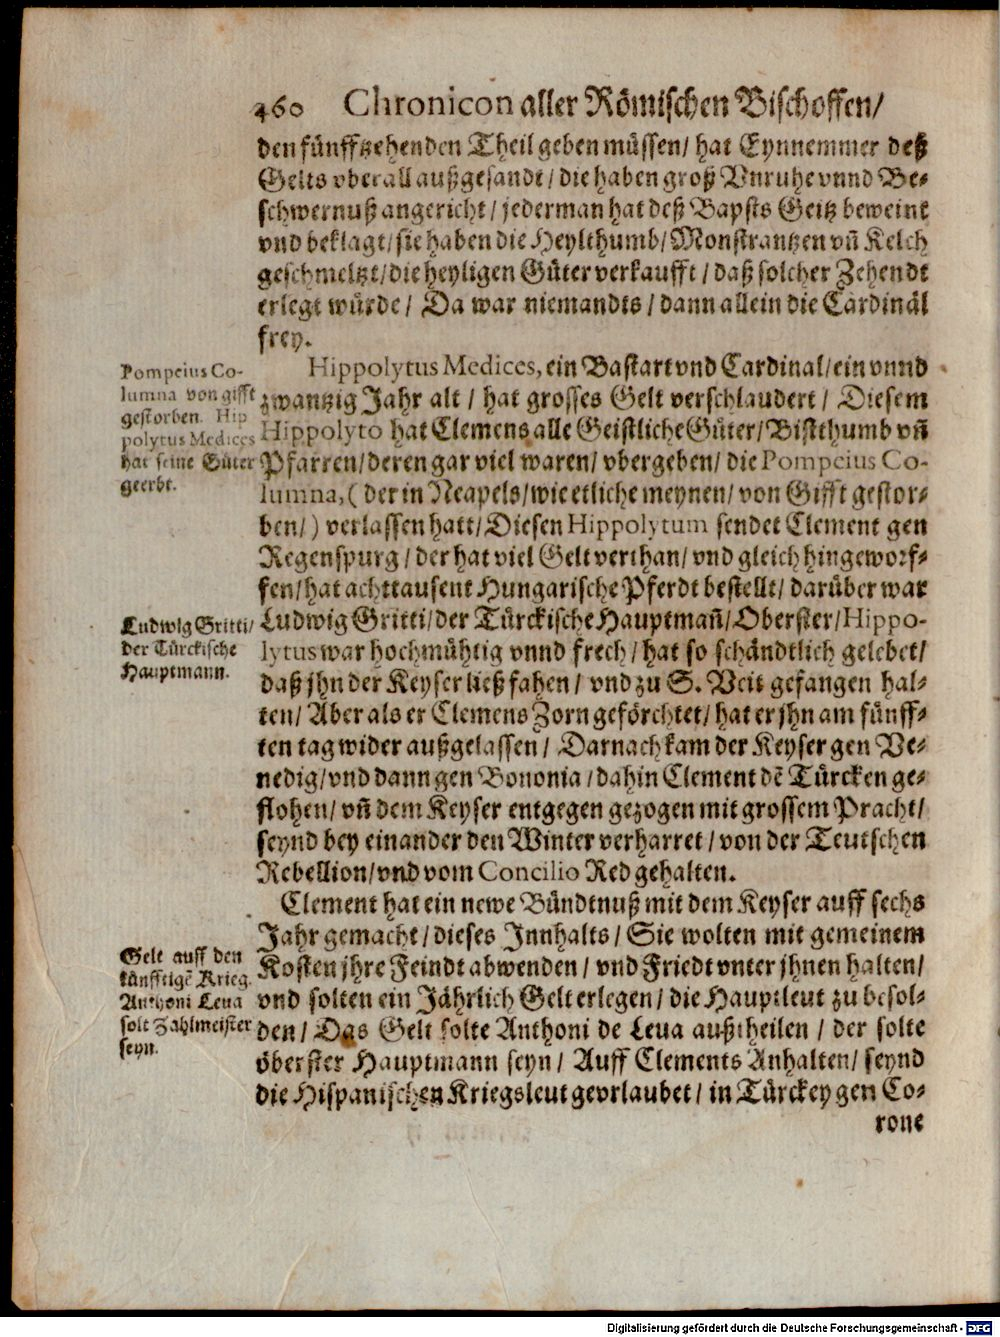 460 Chronicon aller Römischen Bischoffen/
den fünfftzehenden Theil geben müssen/ hat Eynnemmer deß
Gelts vberall außgesandt/ die haben groß Vnruhe vnnd Be-
schwernuß angericht/ jederman hat deß Bapsts Geitz beweint
vnd beklagt/ sie haben die Heylthumb/ Monstrantzen vñ Kelch
geschmeltzt/ die heyligen Güter verkaufft/ daß solcher Zehendt
erlegt würde/ Da war niemandts/ dann allein die Cardinäl
frey.
Hippolytus Medices, ein Bastart vnd Cardinal/ ein vnnd
zwantzig Jahr alt/ hat grosses Gelt verschlaudert/ Diesem
Hippolyto hat Clemens alle Geistliche Güter/ Bisthumb vñ
Pfarren/ deren gar viel waren/ vbergeben/ die Pompeius Co-
lumna, (der in Neapels/ wie etliche meynen/ von Gifft gestor-
ben/) verlassen hatt/ Diesen Hippolytum sendet Clement gen
Regenspurg/ der hat viel Gelt verthan/ vnd gleich hingeworf-
fen/ hat achttausent Hungarische Pferdt bestellt/ darüber war
Ludwig Gritti/ der Türckische Hauptmañ/ Oberster/ Hippo-
lytus war hochmühtig vnnd frech/ hat so schändtlich gelebet/
daß jhn der Keyser ließ fahen/ vnd zu S. Veit gefangen hal-
ten/ Aber als er Clemens Zorn geförchtet/ hat er jhn am fünff-
ten tag wider außgelassen/ Darnach kam der Keyser gen Ve-
nedig/ vnd dann gen Bononia/ dahin Clement dẽ Türcken ge-
flohen/ vñ dem Keyser entgegen gezogen mit grossem Pracht/
seynd bey einander den Winter verharret/ von der Teutschen
Rebellion/ vnd vom Concilio Red gehalten.
Clement hat ein newe Bündtnuß mit dem Keyser auff sechs
Jahr gemacht/ dieses Innhalts/ Sie wolten mit gemeinem
Kosten jhre Feindt abwenden/ vnd Friedt vnter jhnen halten/
vnd solten ein Jährlich Gelt erlegen/ die Hauptleut zu besol-
den/ Das Gelt solte Anthoni de Leua außtheilen/ der solte
öberster Hauptmann seyn/ Auff Clements Anhalten/ seynd
die Hispanischen Kriegsleut gevrlaubet/ in Türckey gen Co-
rone
Pompeius Co-
lumna von gifft
gestorben. Hip
polytus Medices
hat seine Güter
geerbt.
Ludwig Gritti/
der Türckische
Hauptmann.
Gelt auff den
künfftigẽ Krieg.
Anthoni Leua
solt Zahlmeister
seyn.
Digitalisierung gefördert durch die Deutsche Forschungsgemeinschaft - DFG